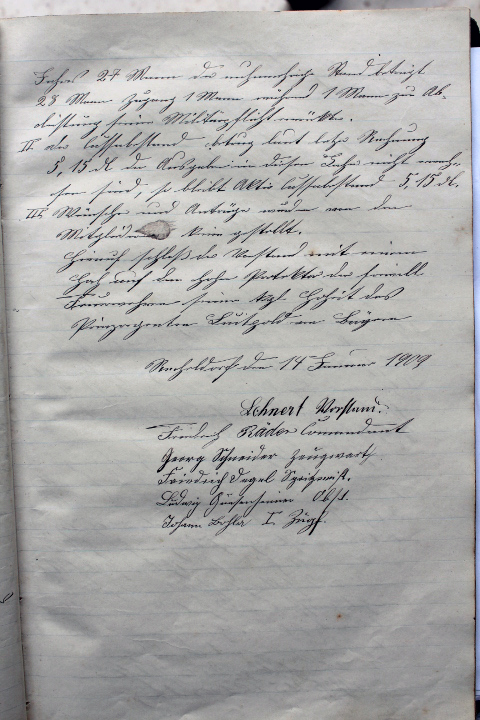 Jahres 27 Mann der nunmehrige Stand beträgt
28 Mann Zugang 1 Mann während 1 Mann zur Ab-
leistung seiner Militärpflicht einrückte.
II Der Cassabestand betrug laut letzter Rechnung
5,15 M da Ausgaben in diesem Jahre nicht
sen sind, so bleibt Aktiv Cassabestand 5,15 M.
III Wünsche und Anträge wurden von den
Mitgliedern keine gestellt.
Hierauf schloß der Vorstand mit einem
Hoch auf den hohen Protektor der freiwill.
Feuerwehren seine kgl. Hoheit des
Prinzregenten Luitpold von Bayern
den 14 Januar 1909
Lehnert Vorstand.
Friedrich Räder Commandant
Georg Schneider Zeugwart
Friedrich Segel Spritzmstr.
Ludwig Obst.
Johann Böhler I. Zugf.